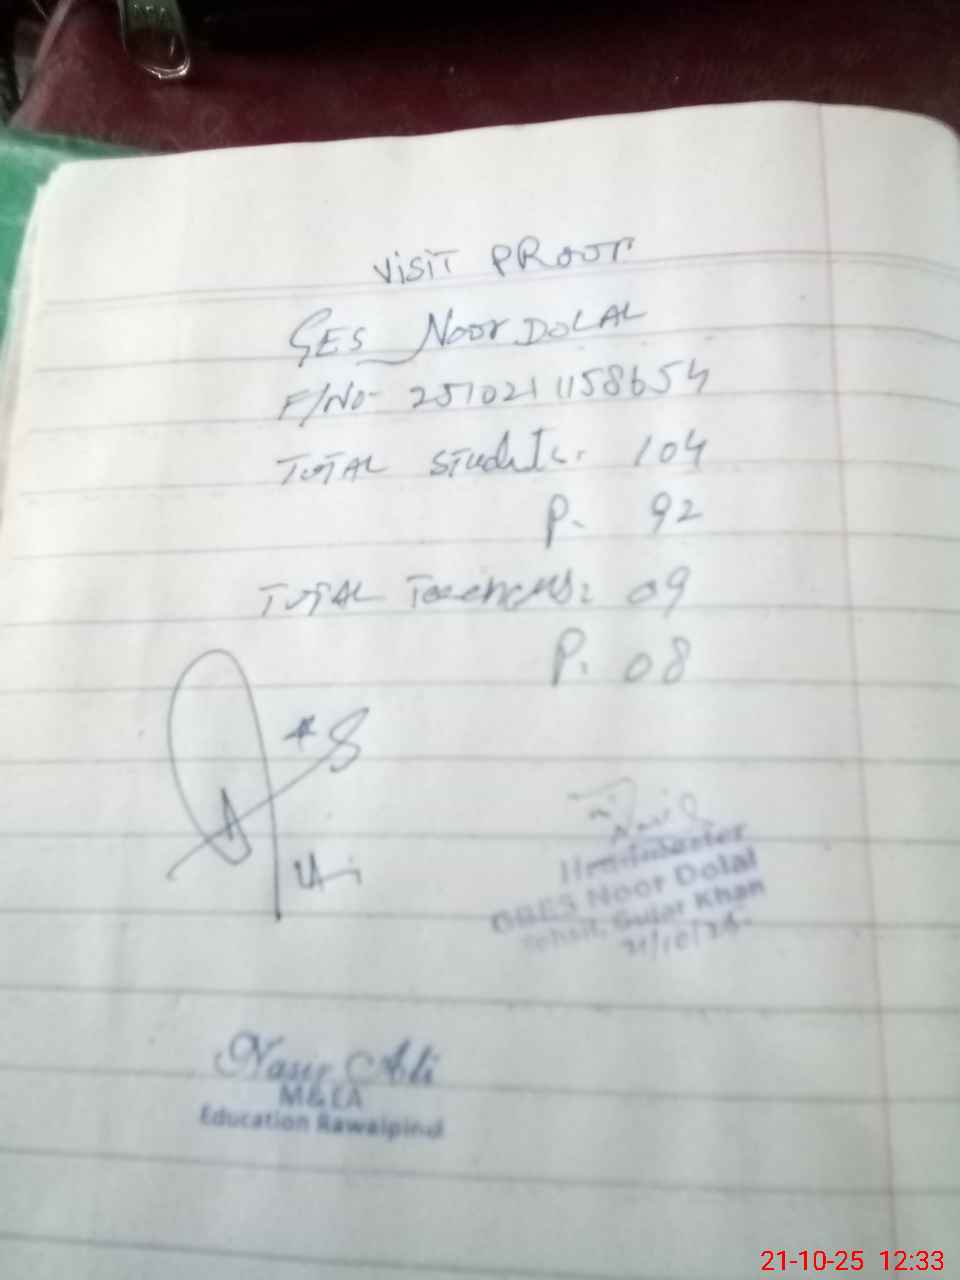 VISIT PROOF
GES Noor DOLAL
F/No- 251021158654
TOTAL students. 104
P. 92
TOTAL Teachers: 09
P. 08
Headmaster
GBES Noor Dolal
Tehsil, Gujar Khan
21/10/25
Nasir Ali
M&EA
Education Rawalpindi
21-10-25 12:33